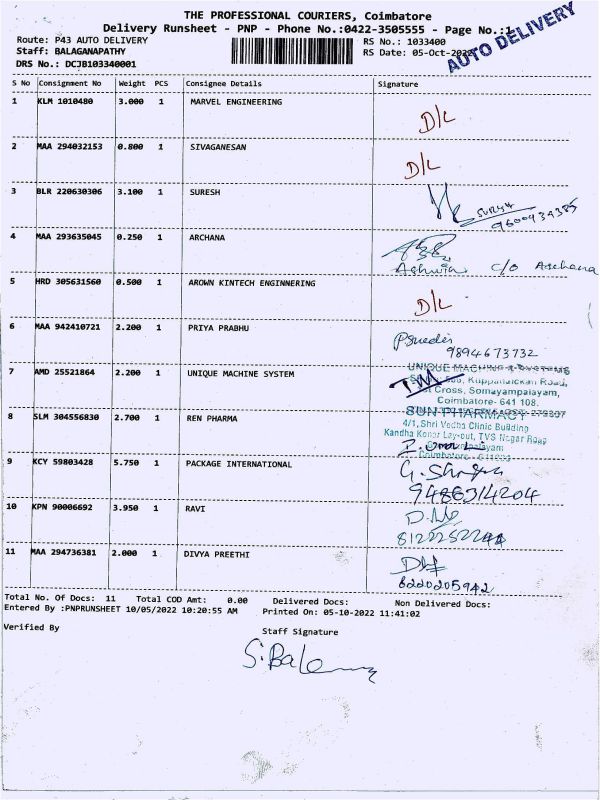 THE PROFESSIONAL COURIERS, Coimbatore
Delivery Runsheet - PNP - Phone No.:0422-3505555 - Page No.:1
AUTO DELIVERY
Route: P43 AUTO DELIVERY RS No.: 1033400
Staff: BALAGANAPATHY RS Date: 05-Oct-2022
DRS No.: DCJB103340001
S No Consignment No Weight PCS Consignee Details Signature
1 KLM 1010480 3.000 1 MARVEL ENGINEERING D/L
2 MAA 294032153 0.800 1 SIVAGANESAN D/L
3 BLR 220630306 3.100 1 SURESH
4 MAA 293635045 0.250 1 ARCHANA
Ashwin c/o Archana
5 HRD 305631560 0.500 1 AROWN KINTECH ENGINNERING D/L
6 MAA 942410721 2.200 1 PRIYA PRABHU
9894673732
7 AMD 25521864 2.200 1 UNIQUE MACHINE SYSTEM
UNIQUE MACHINE SYSTEMS
Kuppanaickan Road,
Cross, Somayampalayam,
Coimbatore- 641 108.
8 SLM 304556830 2.700 1 REN PHARMA
SUN PHARMACY
4/1, Shri Vedha Clinic Building
Kandha Konar Lay-out, TVS Nagar Road
9 KCY 59803428 5.750 1 PACKAGE INTERNATIONAL
9486314204
10 KPN 90006692 3.950 1 RAVI
11 MAA 294736381 2.000 1 DIVYA PREETHI
8220205942
Total No. Of Docs: 11 Total COD Amt: 0.00 Delivered Docs: Non Delivered Docs:
Entered By :PNPRUNSHEET 10/05/2022 10:20:55 AM Printed On: 05-10-2022 11:41:02
Verified By Staff Signature